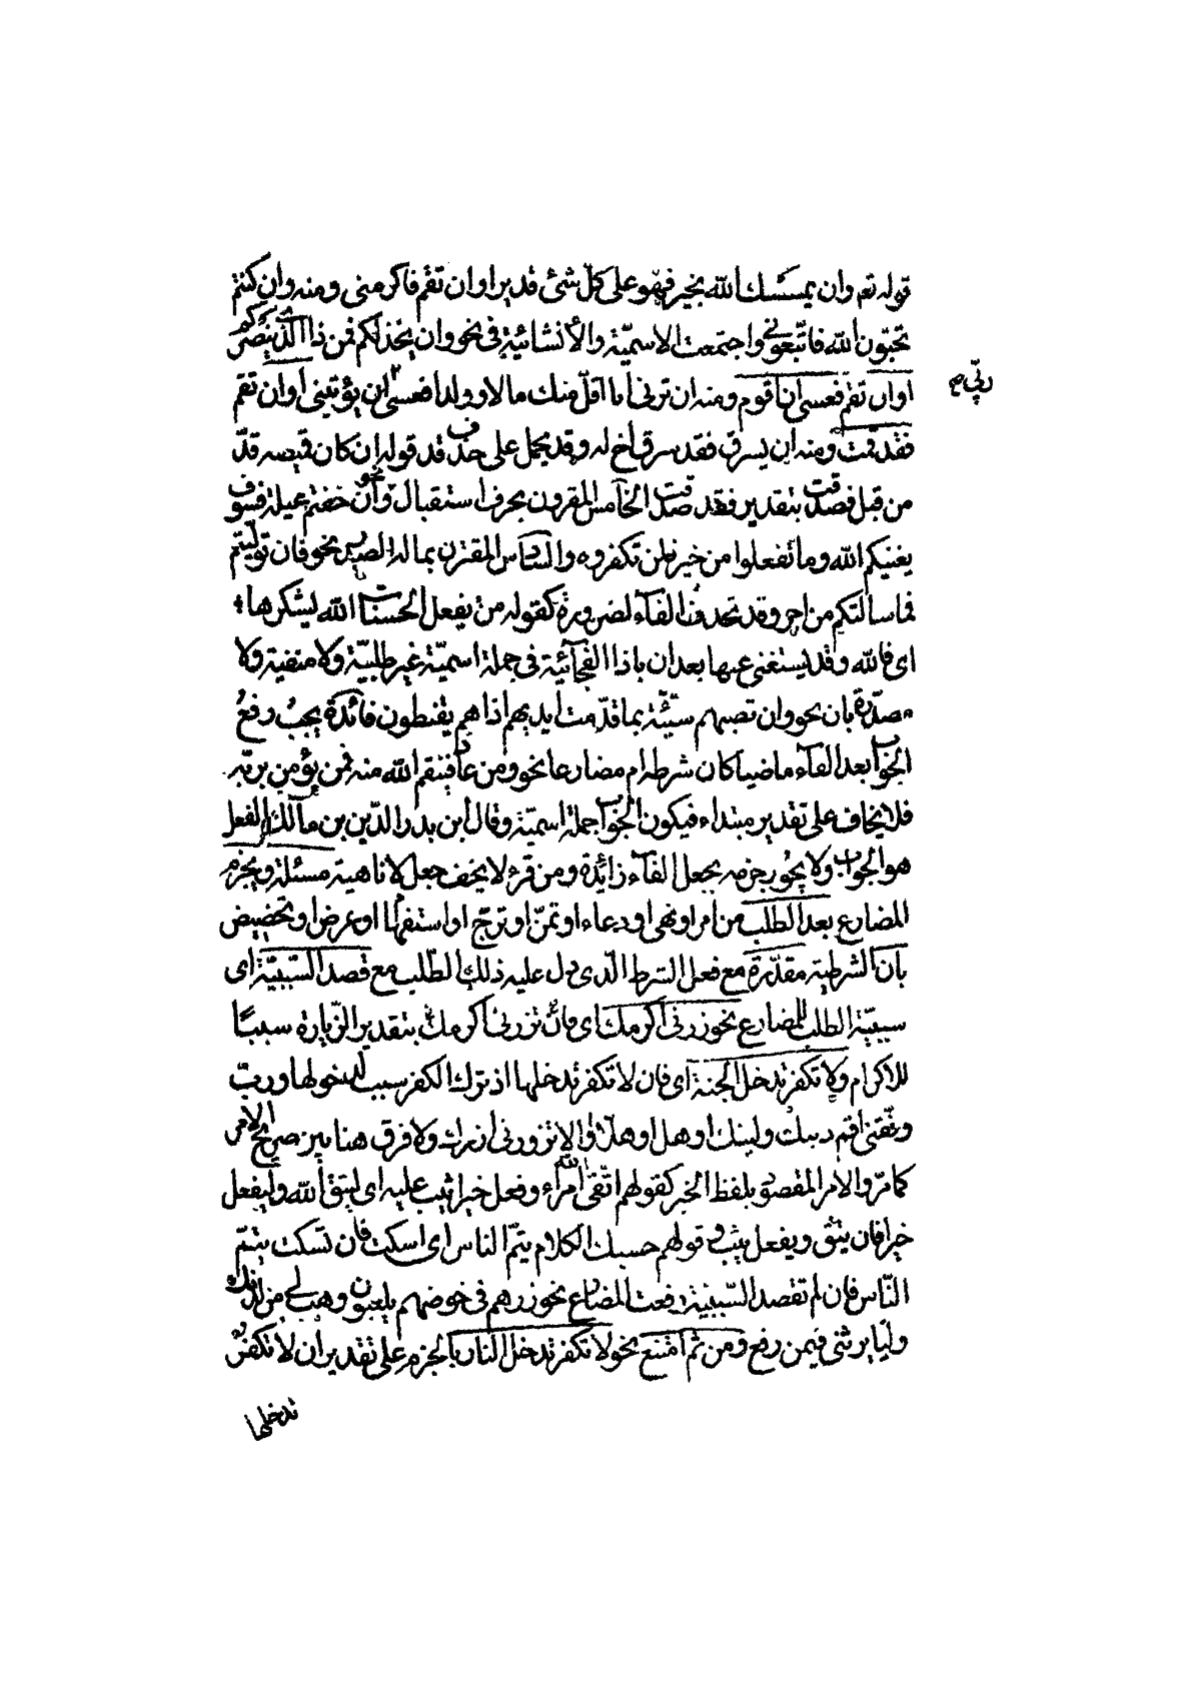 قوله تع وان يمسسك الله بخير فهو على كلّ شئ قدير او ان تقم فاكرمنى ومنه وان كنتم
تحبّون الله فاتّبعونى واجتمعت الاسميّة والأنشائيّة فى نحو وان يخذلكم فمن ذا الّذى ينصركم
او ان تقم فعسى ان اقوم ومنه ان ترنى انا اقلّ منك مالا وولدا فعسى ان يؤتينى او ان تقم
ربّى صح
فقد قمت ومنه ان يسرق فقد سرق اخ له وقد يحمل على حذف قد قوله ان كان قميصه قدّ
من قبل فصدقت بتقدير فقد صدقت الخامس المقرون بحرف استقبال نحو وان خفتم عيلة فسوف
يغنيكم الله وما تفعلوا من خير فلن تكفروه والسادس المقترن بما له الصدر نحو فان تولّيتم
فما سالتكم من اجر وقد تحذف الفاء لضرورة كقوله من يفعل الحسنات الله يشكرها
اى فالله وقد يستغنى عنها بعد ان باذا الفجآئيّة فى جملة اسميّة غير طلبيّة ولا منفية ولا
مصدّرة بان نحو وان تصبهم سيّئة بما قدّمت ايديهم اذا هم يقنطون فائدة يجب رفع
الجواب بعد الفاء ماضيا كان شرطه ام مضارعا نحو ومن عاد فينتقم الله منه فمن يؤمن بربّه
فلا يخاف على تقدير مبتداء فيكون الجواب جملة اسميّة وقال ابن بدر الدّين بن مالك الفعل
هو الجواب ولا يجوز جزمه بجعل الفاء زائدة ومن قرء لا يخف جعل لا ناهية مسئلة ويجزم
المضارع بعد الطلب من امر او نهى او دعاء او تمنّ او ترجّ او استفهام او عرض او تحضيض
بان الشرطية مقدّرة مع فعل الشرط الّذى دل عليه ذلك الطّلب مع قصد السّببيّة اى
سببيّة الطلب للمضارع نحو زرنى اكرمك اى فان تزرنى اكرمك بتقدير الزّيارة سببًا
للاكرام ولا تكفر تدخل الجنة اى فان لا تكفر تدخلها اذ ترك الكفر سبب لدخولها وربّ
وفّقنى اقم دينك وليتك او هل او هلّا او الا تزورنى ازرك ولا فرق هنا بين صريح الامر
كما مرّ والامر المقصود بلفظ الخبر كقولهم اتّقى الله امرء وفعل خيرا يثب عليه اى ليتق الله وليفعل
خيرا فان يتّق ويفعل يثب وقولهم حسبك الكلام يتمّ الناس اى اسكت فان تسكت يتمّ
النّاس فان لم تقصد السّببيّة رفعت المضارع نحو زرهم فى خوضهم يلعبون وهب لى من لدنك
وليّا يرثنى فيمن رفع ومن ثم امتنع نحو لا تكفر تدخل النار بالجزم على تقدير ان لا تكفر
تدخلها